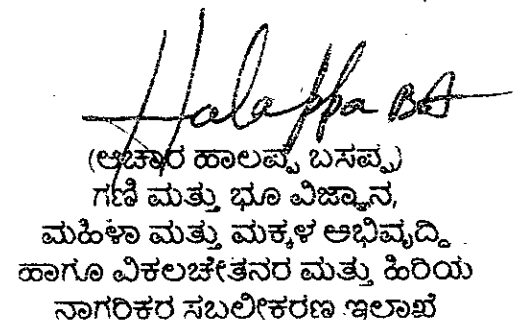 Halappa BA
(ಆಚಾರ ಹಾಲಪ್ಪ ಬಸಪ್ಪ)
ಗಣಿ ಮತ್ತು ಭೂ ವಿಜ್ಞಾನ,
ಮಹಿಳಾ ಮತ್ತು ಮಕ್ಕಳ ಅಭಿವೃದ್ದಿ
ಹಾಗೂ ವಿಕಲಚೇತನರ ಮತ್ತು ಹಿರಿಯ
ನಾಗರಿಕರ ಸಬಲೀಕರಣ ಇಲಾಖೆ